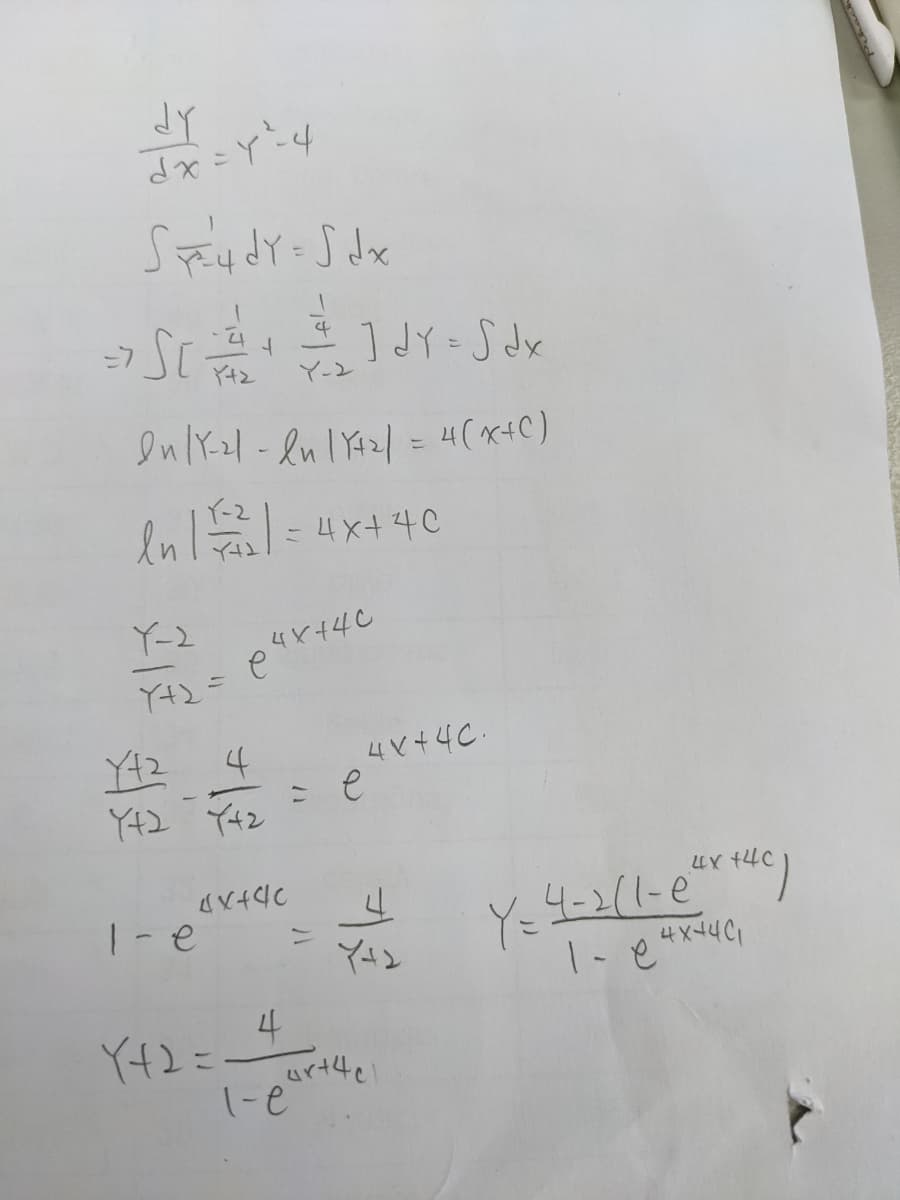 dY/dx = Y² - 4
∫ 1/(Y²-4) dY = ∫ dx
=> ∫ [ (-1/4)/(Y+2) + (1/4)/(Y-2) ] dY = ∫ dx
ln|Y-2| - ln|Y+2| = 4(x+C)
ln|(Y-2)/(Y+2)| = 4x+4C
(Y-2)/(Y+2) = e^(4x+4C)
(Y+2)/(Y+2) - 4/(Y+2) = e^(4x+4C).
1 - e^(4x+4C) = 4/(Y+2)
Y+2 = 4/(1-e^(4x+4C₁))
Y = (4-2(1-e^(4x+4C)))/(1-e^(4x+4C₁))